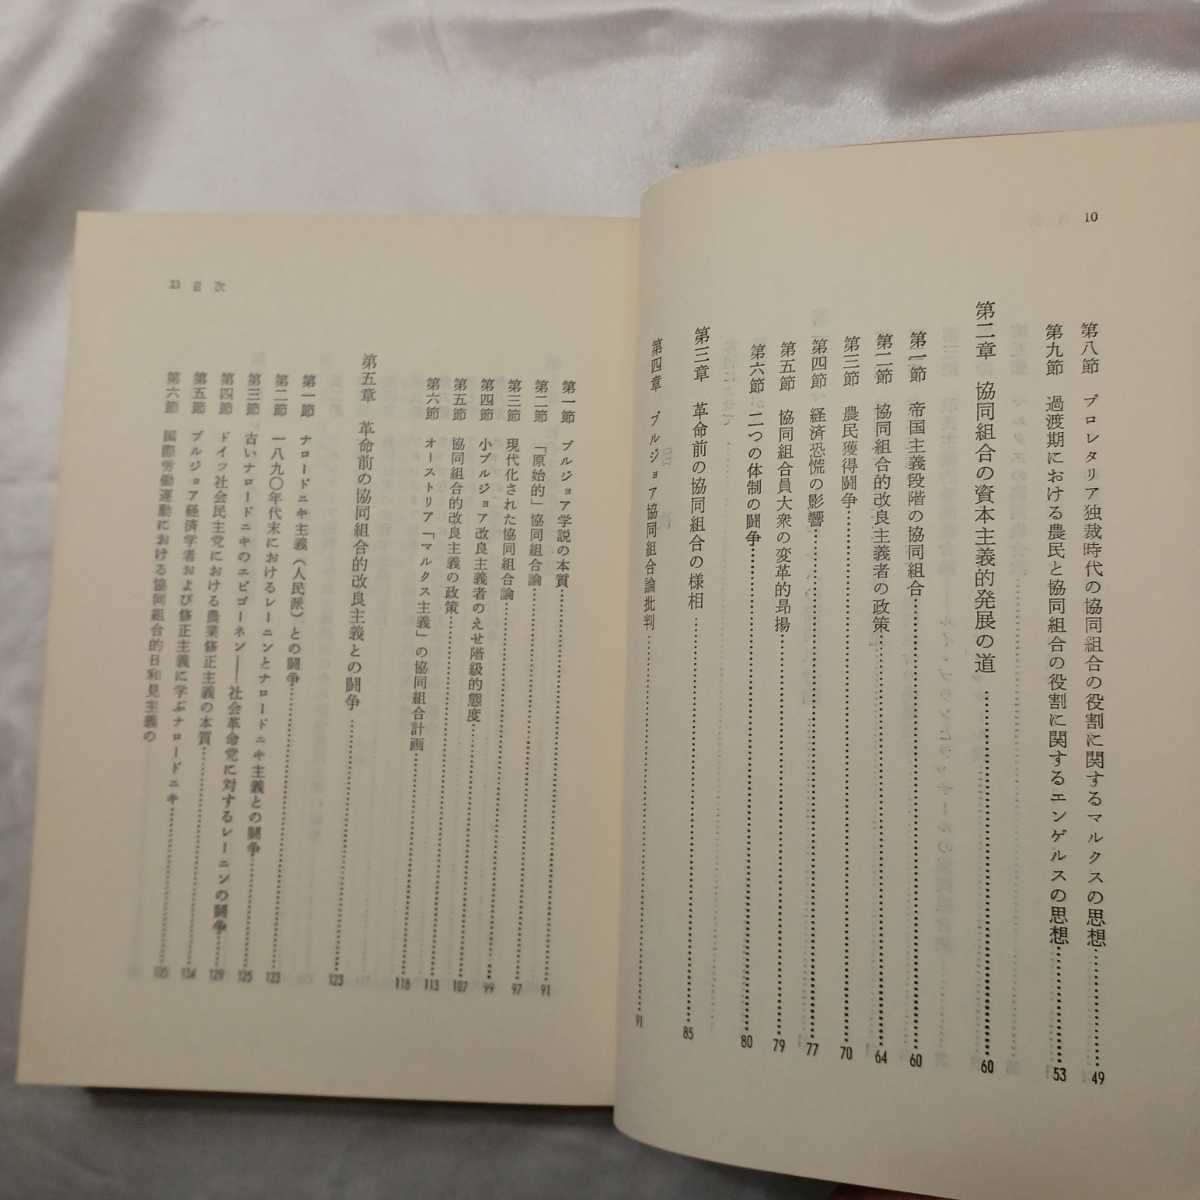 10
第八節 プロレタリア独裁時代の協同組合の役割に関するマルクスの思想……49
第九節 過渡期における農民と協同組合の役割に関するエンゲルスの思想……53
第二章 協同組合の資本主義的発展の道……60
第一節 帝国主義段階の協同組合……60
第二節 協同組合的改良主義者の政策……64
第三節 農民獲得闘争……70
第四節 経済恐慌の影響……77
第五節 協同組合員大衆の変革的昂揚……79
第六節 二つの体制の闘争……80
第三章 革命前の協同組合の様相……85
第四章 ブルジョア協同組合論批判……91
11 目次
第一節 ブルジョア学説の本質……91
第二節 「原始的」協同組合論……97
第三節 現代化された協同組合論……99
第四節 小ブルジョア改良主義者のえせ階級的態度……107
第五節 協同組合的改良主義の政策……113
第六節 オーストリア「マルクス主義」の協同組合計画……118
第五章 革命前の協同組合的改良主義との闘争……123
第一節 ナロードニキ主義（人民派）との闘争……123
第二節 一八九〇年代末におけるレーニンとナロードニキ主義との闘争……125
第三節 古いナロードニキのエピゴーネン——社会革命党に対するレーニンの闘争……129
第四節 ドイツ社会民主党における農業修正主義の本質……134
第五節 ブルジョア経済学者および修正主義に学ぶナロードニキ……135
第六節 国際労働運動における協同組合的日和見主義の